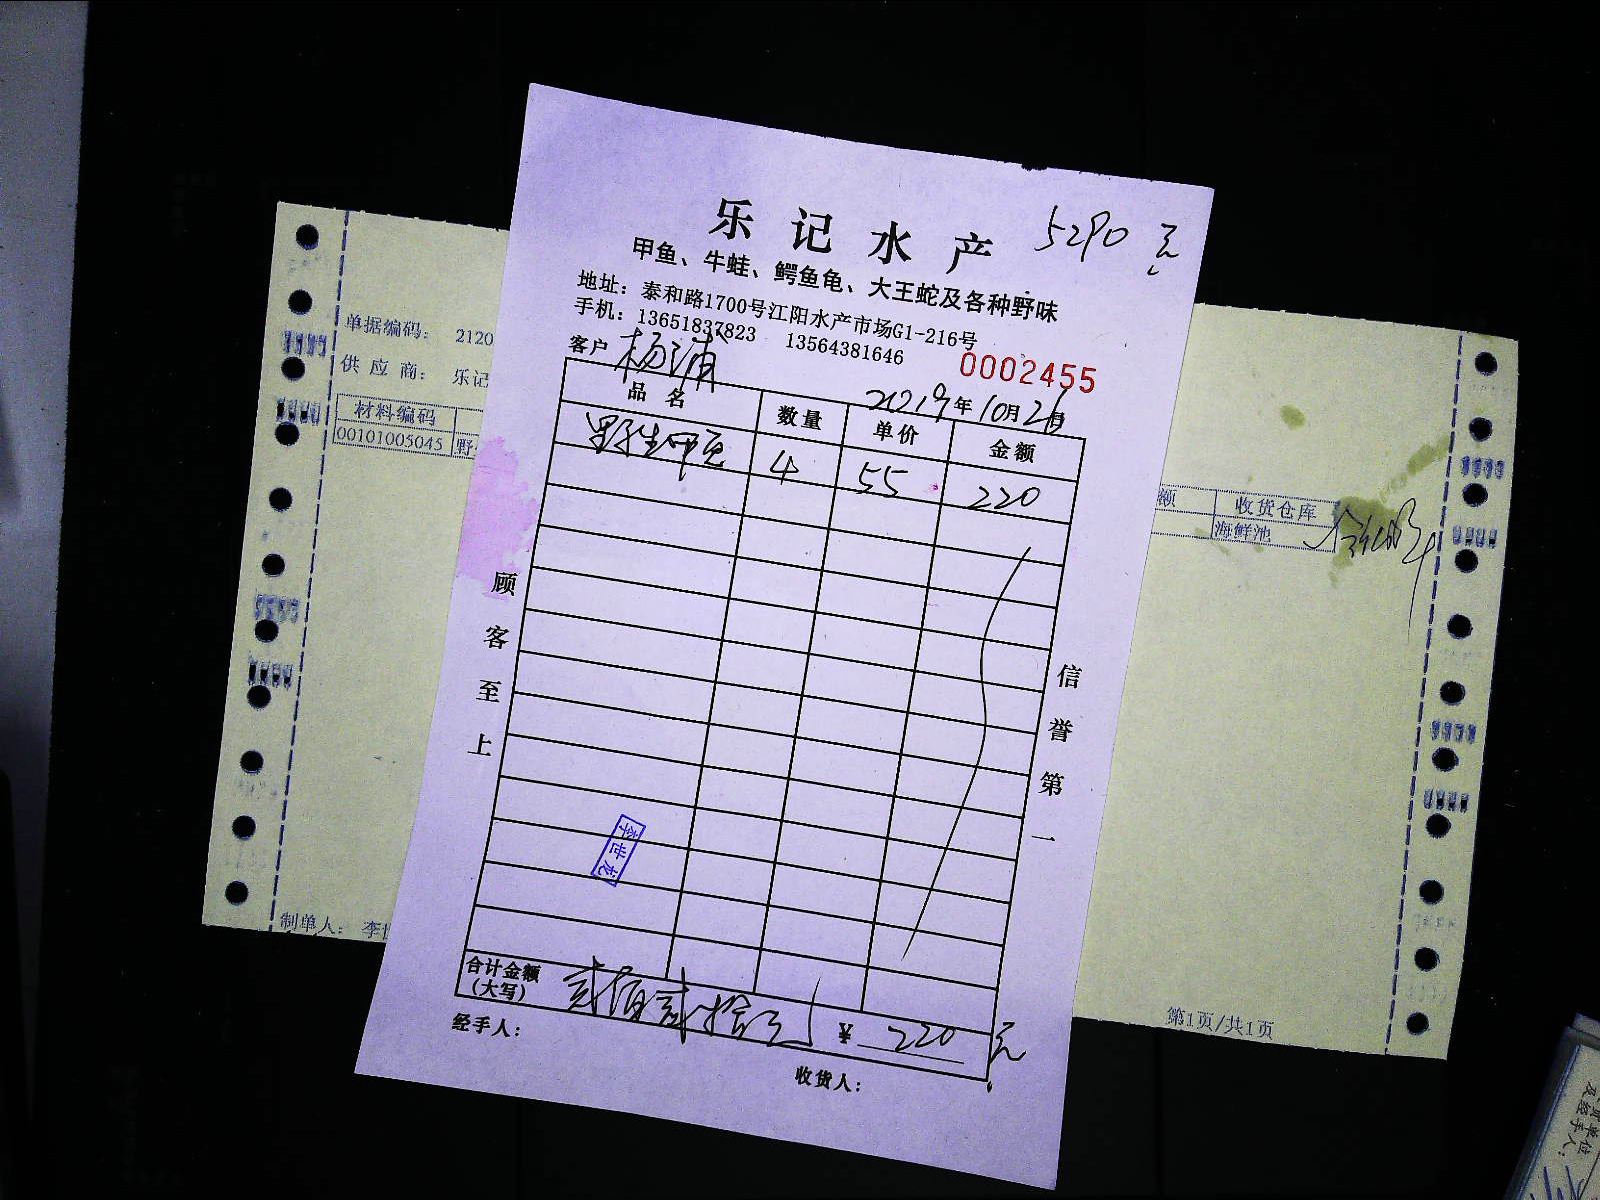 乐记水产
5290元
甲鱼、牛蛙、鳄鱼龟、大王蛇及各种野味
地址：泰和路1700号江阳水产市场G1-216号
手机：13651837823 13564381646
0002455
客户 杨浦
2019年10月21日
品名 数量 单价 金额
野生甲鱼 4 55 220
顾客至上
信誉第一
李世龙
合计金额（大写） 贰佰贰拾元 ¥ 220元
经手人：
收货人：
单据编码： 2120
供应商： 乐记
材料编码
00101005045 野
额 收货仓库
海鲜池
制单人： 李
第1页/共1页